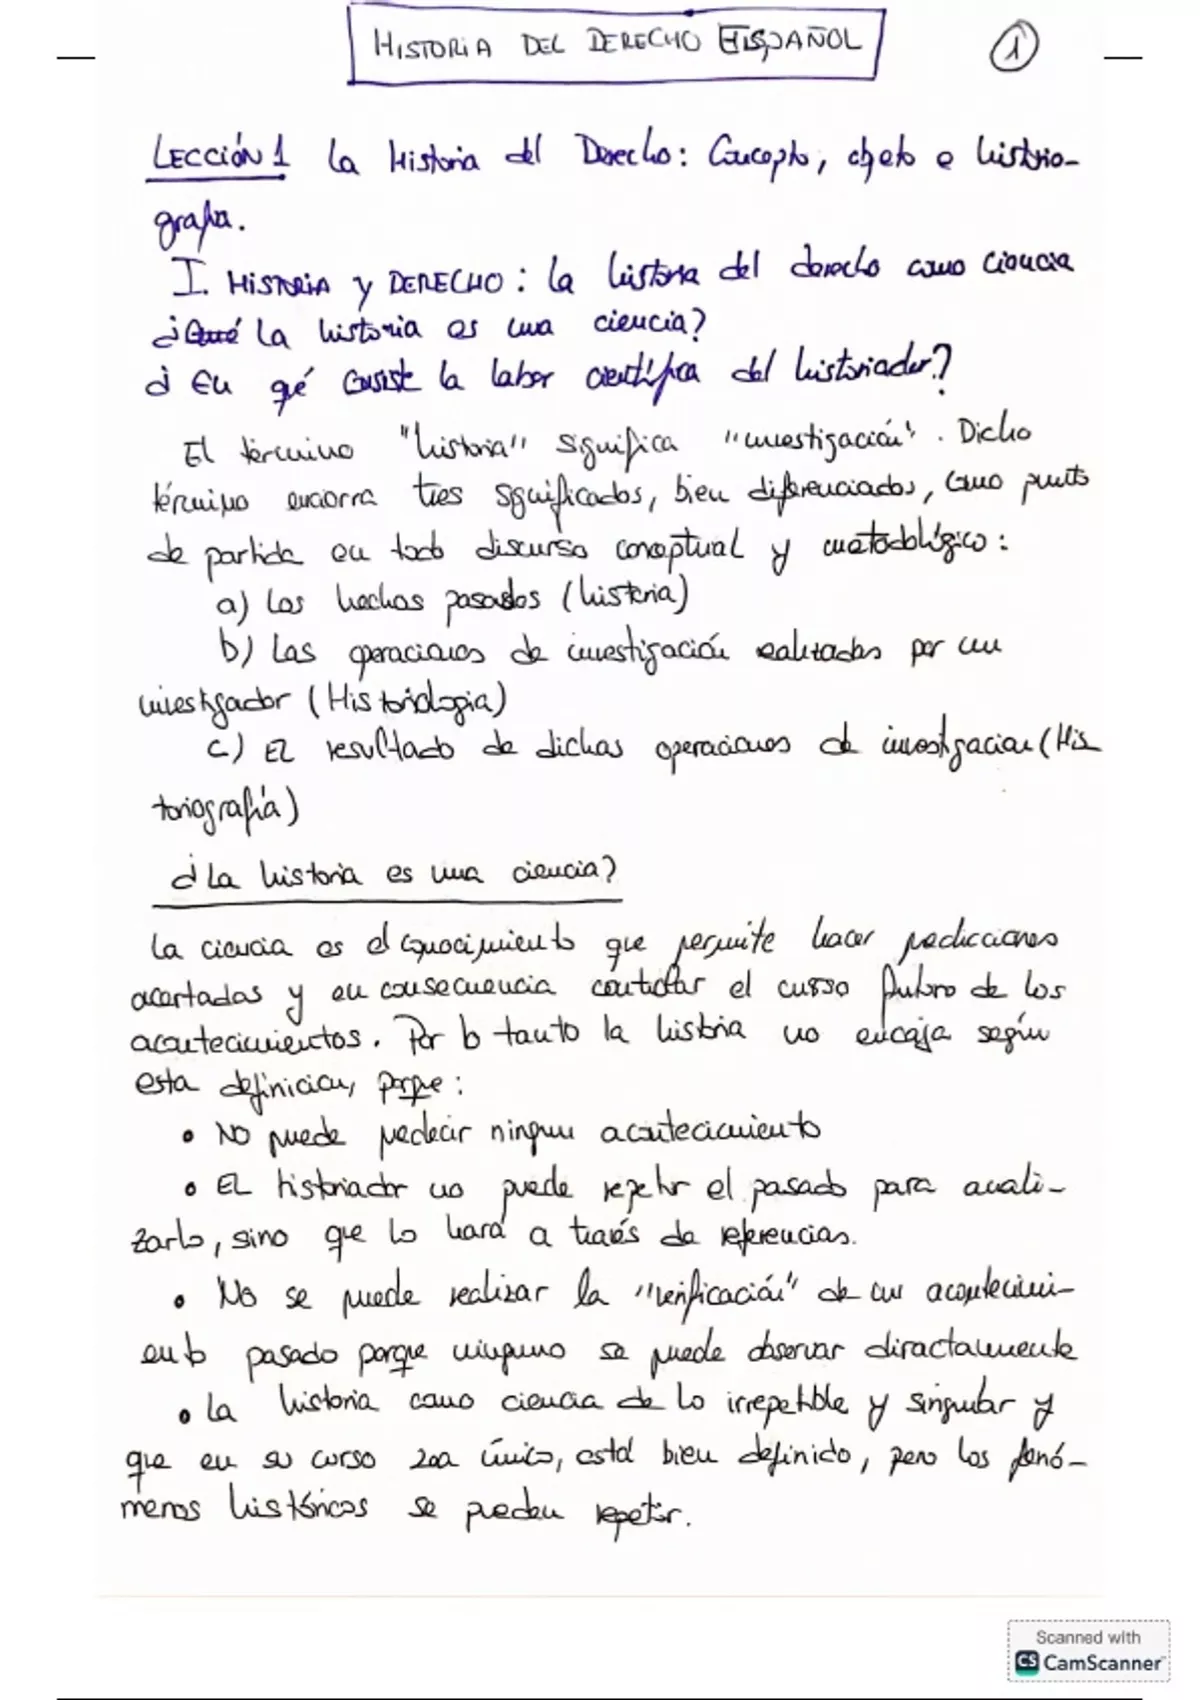 HISTORIA DEL DERECHO ESPAÑOL
1
LECCIÓN 1 La Historia del Derecho: Concepto, objeto e historio-
grafía.
I. HISTORIA y DERECHO: la historia del derecho como ciencia
¿Qué La historia es una ciencia?
¿En qué consiste la labor científica del historiador?
El término "historia" significa "investigación". Dicho
término encierra tres significados, bien diferenciados, como punto
de partida en todo discurso conceptual y metodológico:
a) Los hechos pasados (historia)
b) Las operaciones de investigación realizadas por un
investigador (Historiología)
c) El resultado de dichas operaciones de investigacion (His
toriografía)
¿La historia es una ciencia?
La ciencia es el conocimiento que permite hacer predicciones
acertadas y en consecuencia controlar el curso futuro de los
acontecimientos. Por lo tanto la historia no encaja según
esta definicion, porque:
• No puede predecir ningun acontecimiento
• El historiador no puede repetir el pasado para anali-
zarlo, sino que lo hará a través de referencias.
• No se puede realizar la "verificación" de un acontecimi-
ento pasado porque ninguno se puede observar directamente
• La historia como ciencia de lo irrepetible y singular y
que en su curso sea único, está bien definido, pero los fenó-
menos históricos se pueden repetir.
Scanned with
CS CamScanner